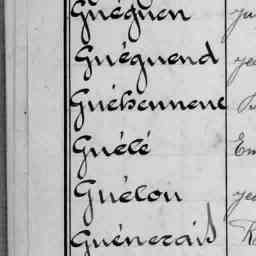 Guéguen
Guéguend
Guéhenneuc
Guélé
Guélou
Guénerais